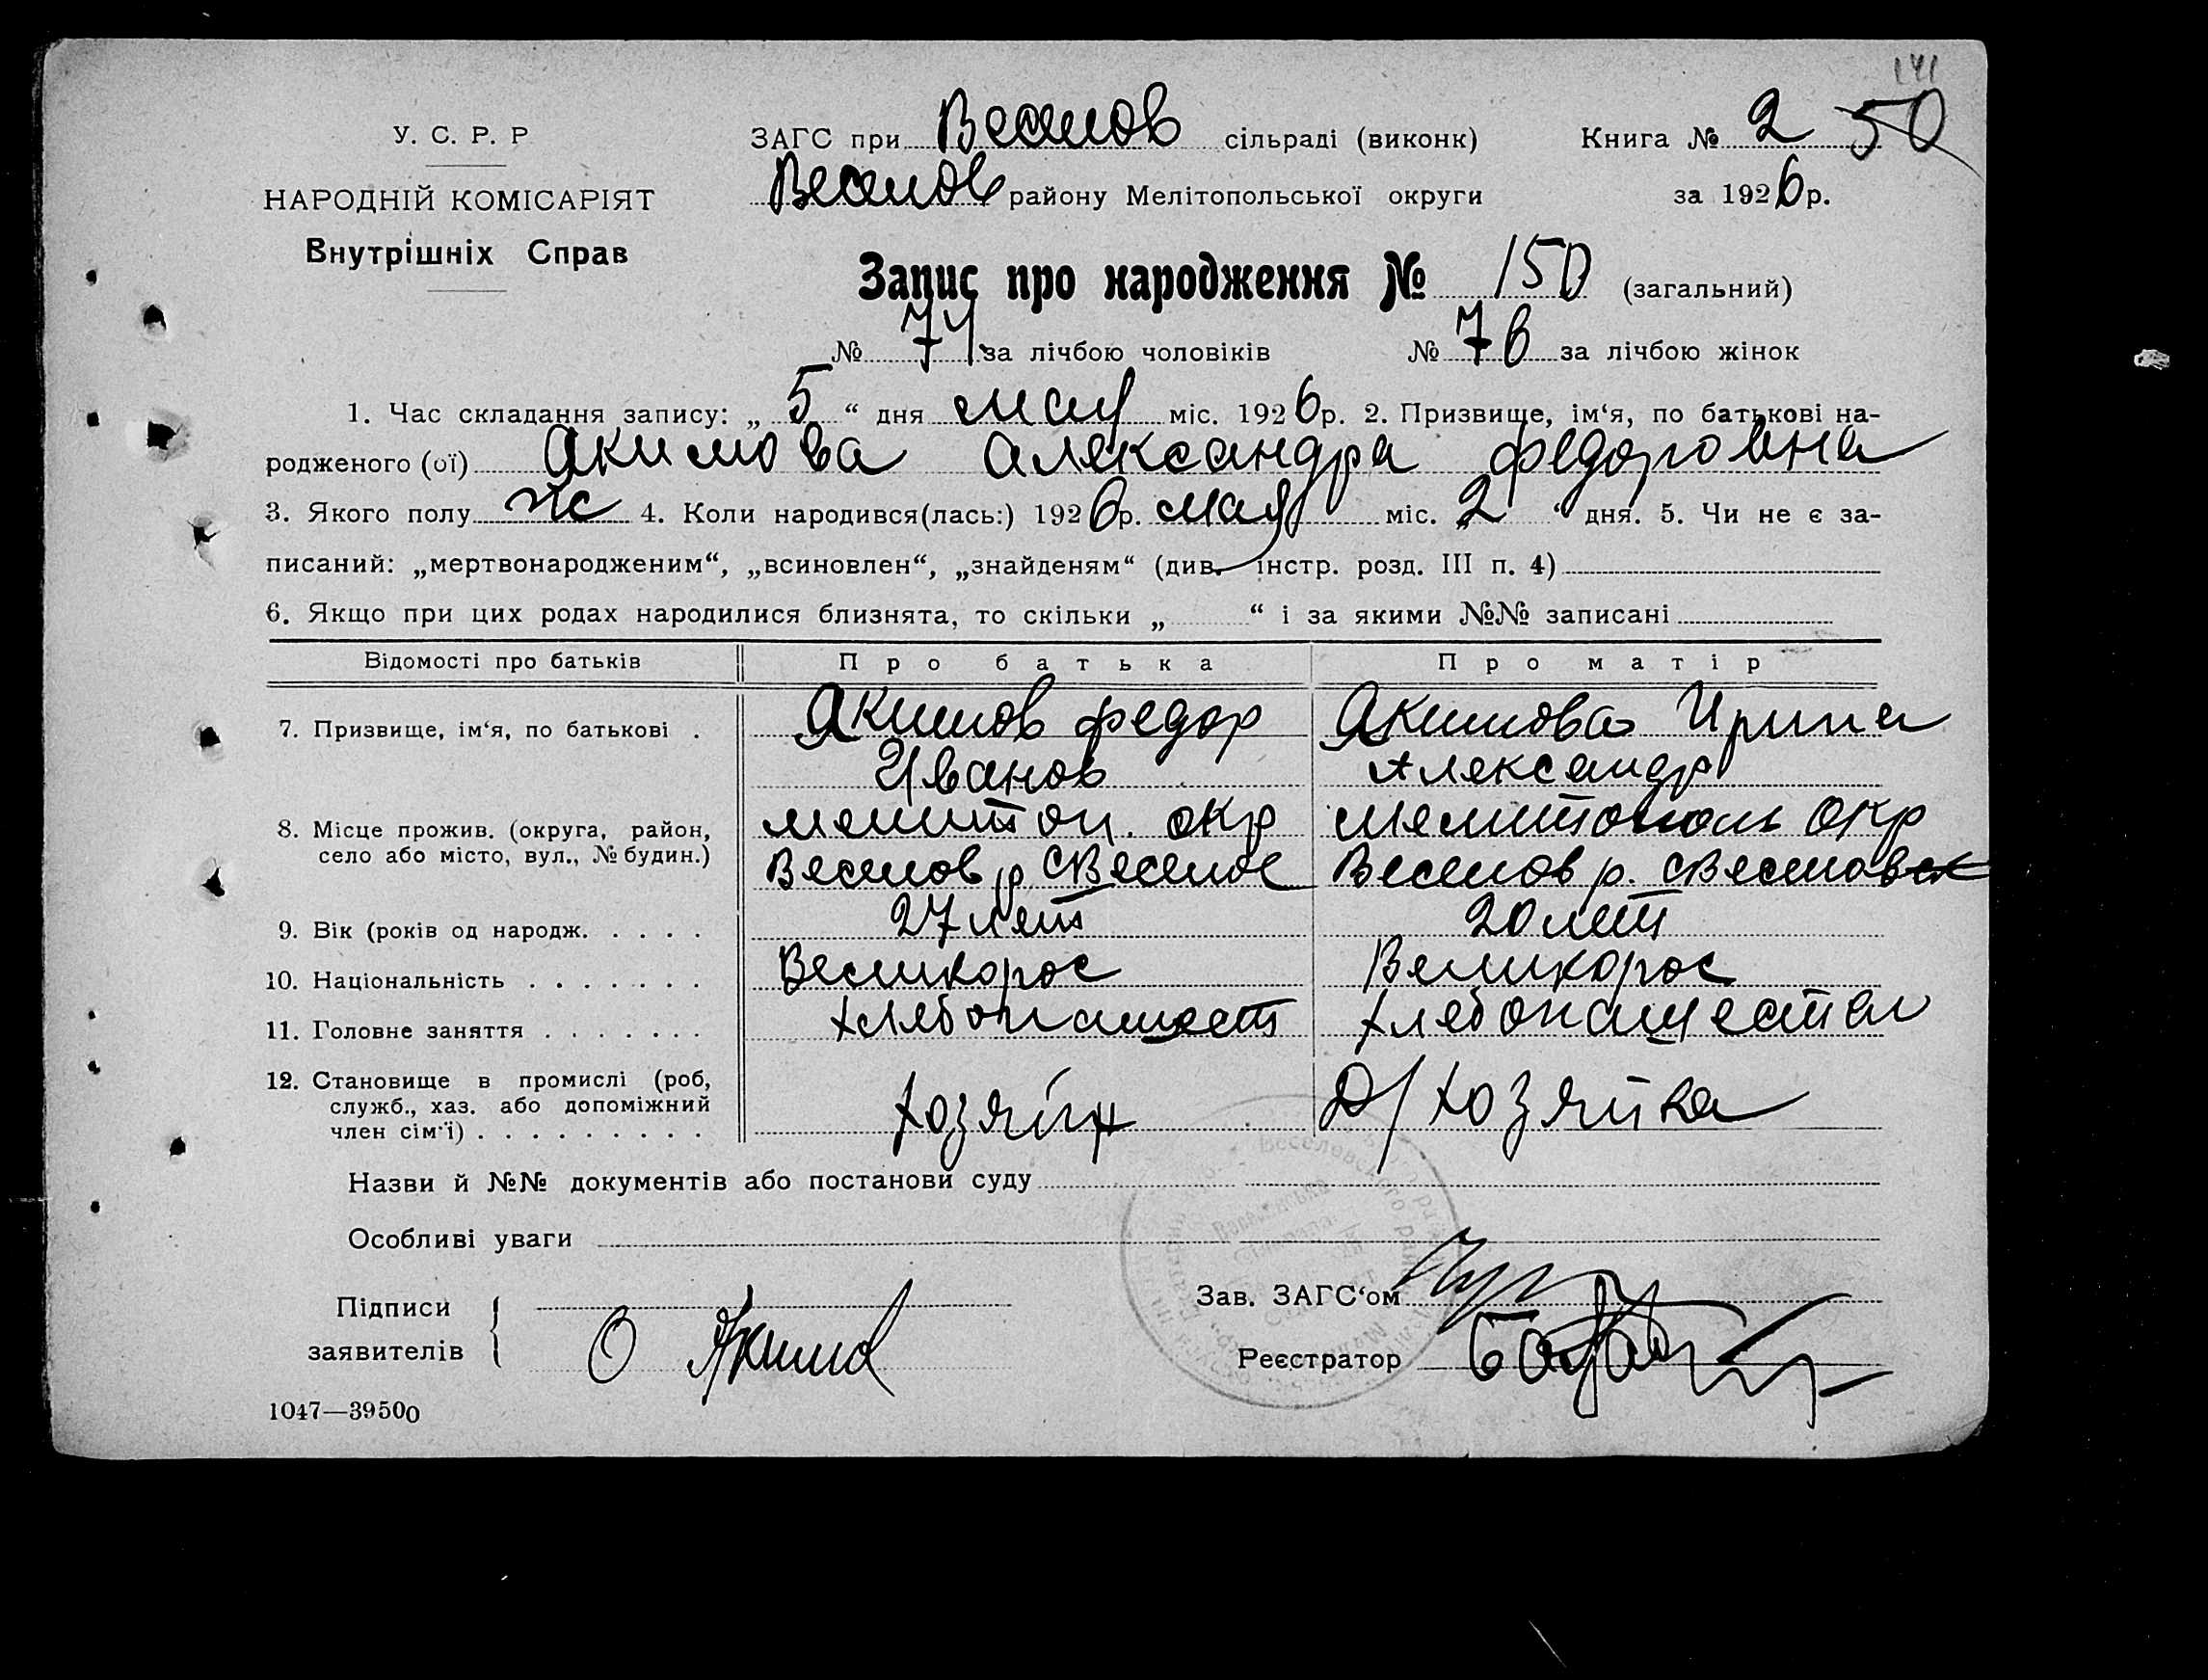 141
У. С. Р. Р
ЗАГС при Веселов сільраді (виконк) Книга № 2 50
НАРОДНІЙ КОМІСАРІЯТ
Веселов району Мелітопольської округи за 1926 р.
Внутрішніх Справ
Запис про народження № 150 (загальний)
№ 74 за лічбою чоловіків № 76 за лічбою жінок
1. Час складання запису: „ 5 “ дня мая міс. 1926 р. 2. Призвище, ім‘я, по батькові на-
родженого (ої) Акимова Александра Федоровна
3. Якого полу ж 4. Коли народився(лась:) 1926 р. мая міс. „ 2 “ дня. 5. Чи не є за-
писаний: „мертвонародженим“, „всиновлен“, „знайденям“ (див. інстр. розд. III п. 4)
6. Якщо при цих родах народилися близнята, то скільки „ “ і за якими №№ записані
Відомості про батьків Про батька Про матір
7. Призвище, ім‘я, по батькові . Акимов Федор Акимова Ирина
Иванов Александр
8. Місце прожив. (округа, район, Мелитоп. окр Мелитополь окр
село або місто, вул., № будин.) Веселов р. с Веселое Веселов р. с
9. Вік (років од народж. . . . . 27 лет 20 лет
10. Національність . . . . . . . Великорос Великорос
11. Головне заняття . . . . . . . хлебопашест хлебопашество
12. Становище в промислі (роб,
служб., хаз. або допоміжний хозяин Д/хозяйка
член сім‘ї) . . . . . . . . .
Назви й №№ документів або постанови суду
Особливі уваги
Підписи
заявителів О Акимов
Зав. ЗАГС‘ом
Реєстратор
1047—39500